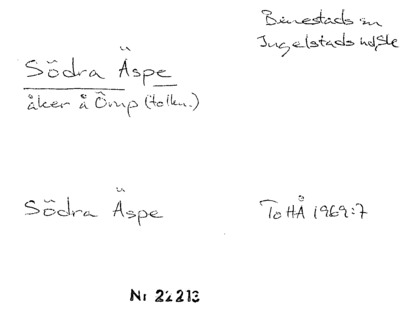 Benestads sn
Ingelstads hd, Sk
Södra Äspe
åker å Ömp (tolkn.)
Södra Äspe
ToHÅ 1969:7
Nr 22213